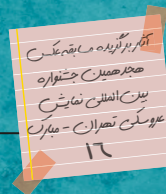 آثار برگزیده مسابقه عکس
هجدهمین جشنواره
بین المللی نمایش
عروسکی تهران - مبارک
١٦